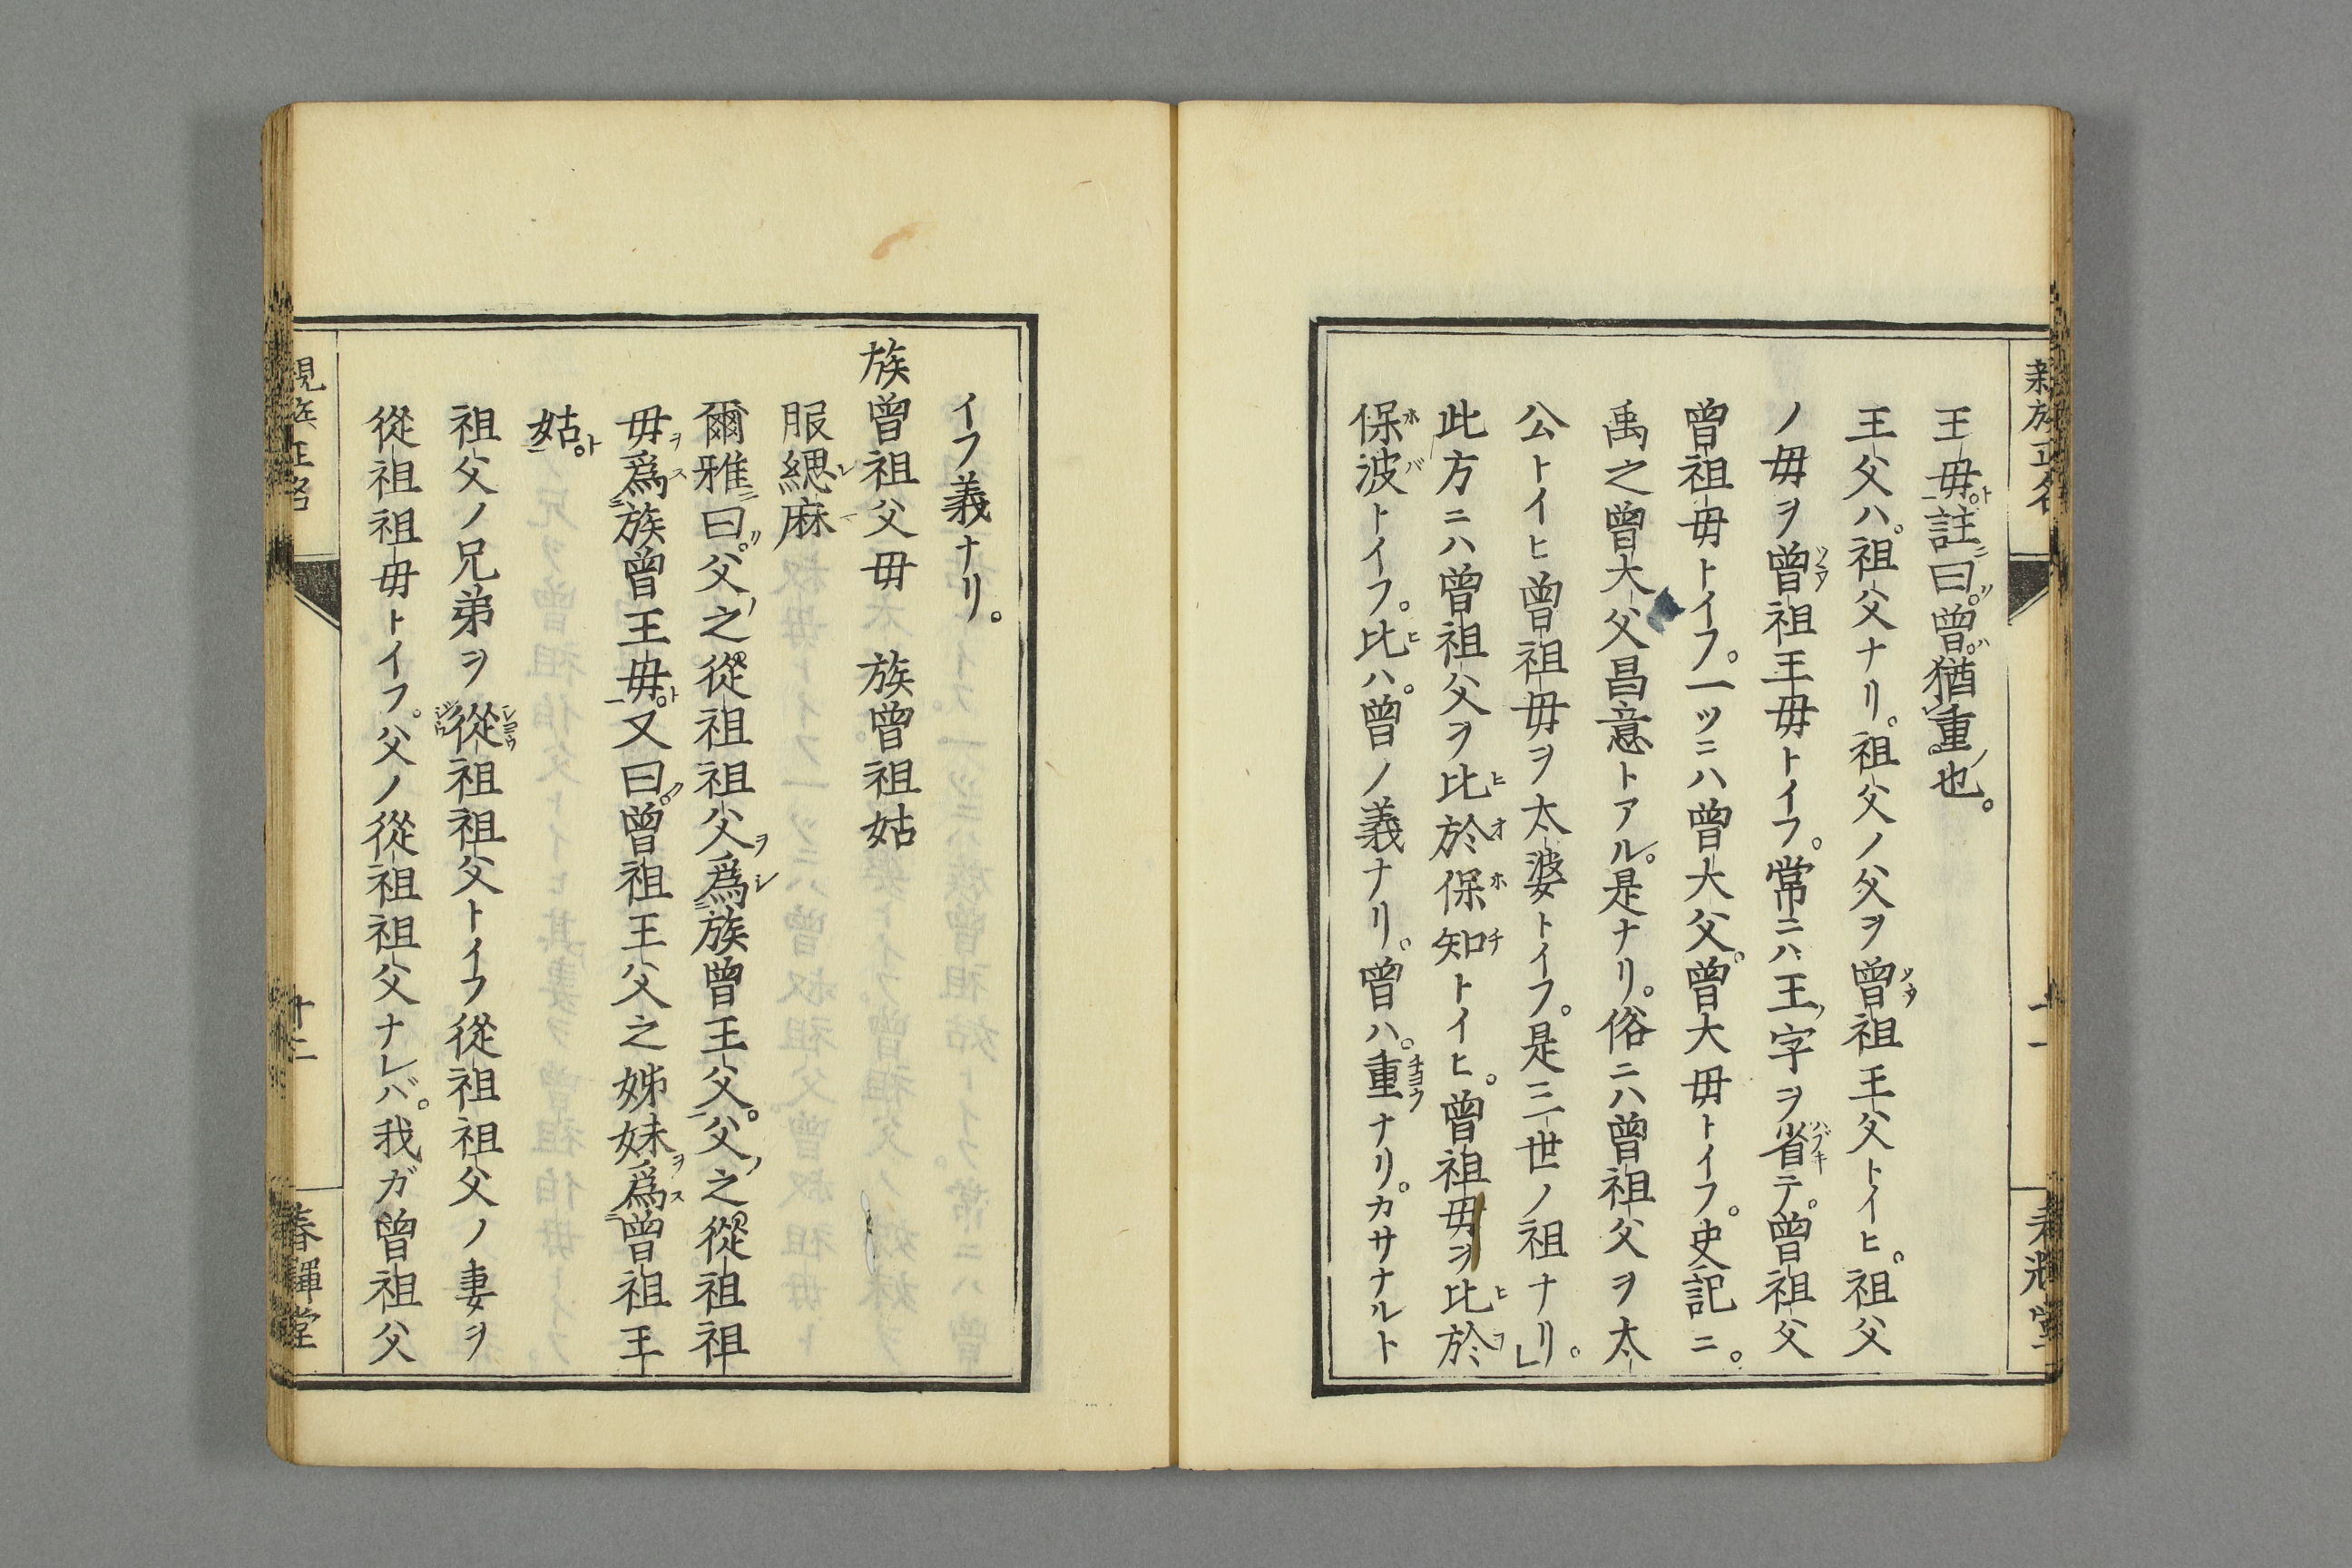 王母註曰曾猶重也。
王父ハ。祖父ナリ。祖父ノ父ヲ曾祖王父トイヒ。祖父
ノ母ヲ曾祖王母トイフ。常ニハ王ノ字ヲ省テ。曾祖父
曾祖母トイフ。一ツニハ曾大父。曾大母トイフ。史記ニ。
禹之曾大父昌意トアル。是ナリ。俗ニハ曾祖父ヲ太
公トイヒ曾祖母ヲ太婆トイフ。是三世ノ祖ナリ。
此方ニハ曾祖父ヲ比於保知トイヒ。曾祖母ヲ比於
保波トイフ。比ハ。曾ノ義ナリ。曾ハ。重ナリ。カサナルト
イフ義ナリ。
族曾祖父母 族曾祖姑
服緦麻
爾雅曰。父之從祖祖父爲族曾王父。父之從祖祖
母爲族曾王母。又曰。曾祖王父之姊妹爲曾祖王
姑。
祖父ノ兄弟ヲ從祖祖父トイフ從祖祖父ノ妻ヲ
從祖祖母トイフ。父ノ從祖祖父ナレバ。我ガ曾祖父
春暉堂